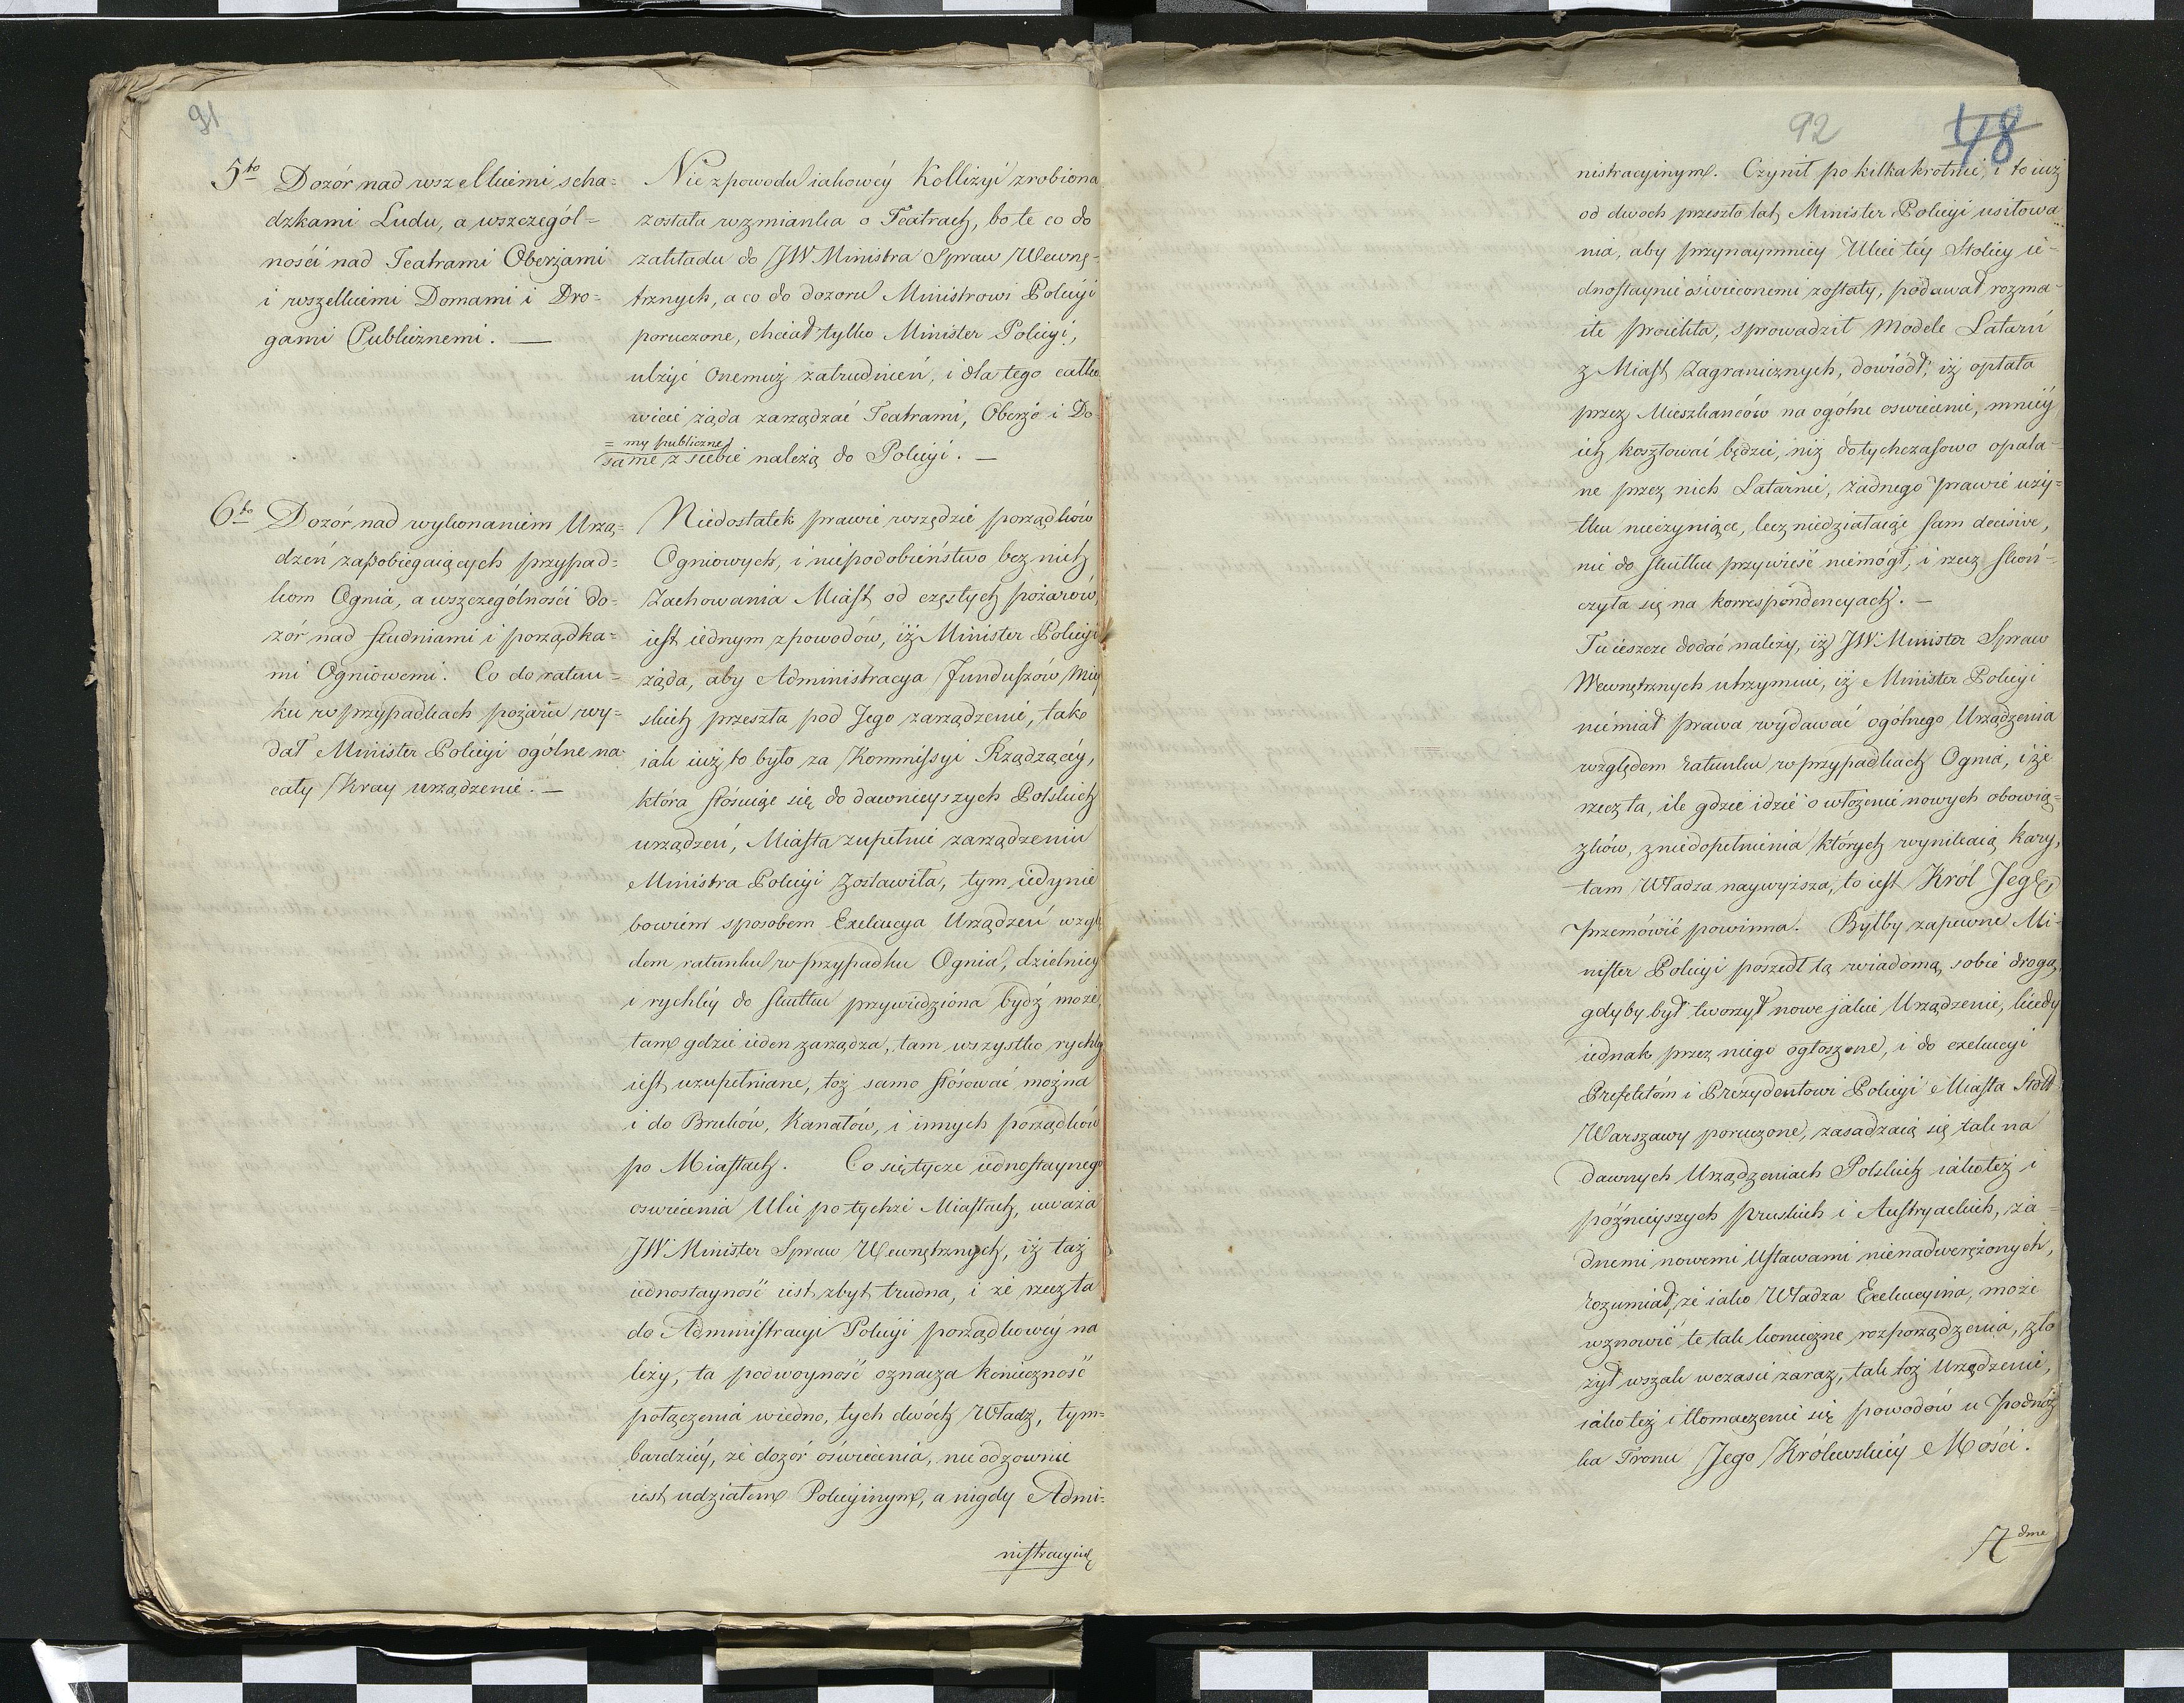 91
5to Dozór nad wszelkiemi scha=
dzkami Ludu, a wszczegól=
ności nad Teatrami Oberżami
i wszelkiemi Domami i Dro=
gami Publicznemi. —
Nie z powodu iakowéy Kollizyi zrobiona
została wzmianka o Teatrach, bo te co do
zakładu do JW Ministra Spraw Wewnę=
trznych, a co do dozoru Ministrowi Policyi
poruczone, chciał tylko Minister Policyi,
ulżyć onemuż zatrudnień, i dla tego całko
wicie żąda zarządzać Teatrami, Oberże i Do
= my publiczne
same z siebie należą do Policyi. —
6to Dozór nad wykonaniem Urzą=
dzeń zapobiegaiących przypad=
kom Ognia, a wszczególności do=
zór nad studniami i porządka=
mi Ogniowemi. Co do ratun=
ku w przypadkach pożaru wy=
dał Minister Policyi ogólne na
cały Kray urządzenie. —
Niedostatek prawie wszędzie porządków
Ogniowych, i niepodobieństwo bez nich
Zachowania Miast od częstych pożarów,
iest iednym z powodów, iż Minister Policyi
żąda, aby Administracya Funduszów Miey
skich przeszła pod Jego zarządzenie, tak
iak iuż to było za Kommissyi Rządzącéy,
która stósuiąc się do dawnieyszych Polskich
urządzeń, Miasta zupełnie zarządzeniu
Ministra Policyi Zostawiła, tym iedynie
bowiem sposobem Exekucya Urządzeń wzglę
dem ratunku w przypadku Ognia, dzielniey
i rychléy do skutku przywiedziona bydź może
tam gdzie ieden zarządza, tam wszystko rychło
iest uzupełniane, toż samo stósować można
i do Bruków, Kanałów, i innych porządków
po Miastach. Co się tycze iednostaynego
oswiecenia Ulic po tychże Miastach, uważa
JW Minister Spraw Wewnętrznych, iż taż
iednostayność iest zbyt trudna, i że rzecz ta
do Administracyi Policyi porządkowéy na
leży, ta podwoyność oznacza konieczność
połączenia wiedno, tych dwóch Władz, tym=
bardziéy, że dozór oświecenia, nieodzownie
iest udziałem Policyinym, a nigdy Admi=
nistracyinym
92
48
nistracyinym. Czynił po kilkakrotnie, i to iuż
od dwoch przeszło lat, Minister Policyi usiłowa
nia, aby przynaymniey Ulice téy Stolicy ie=
dnostaynie oświeconemi zostały, podawał rozma=
ite proiekta, sprowadził Modele Latarń
z Miast Zagranicznych, dowiódł, iż opłata
przez Mieszkanców na ogólne oswiecenie, mniéy
ich kosztować będzie, niż dotychczasowo opala=
ne przez nich Latarnie, żadnego prawie uży=
tku nieczyniące, lecz niedziałaiąc sam decisive,
nic do skutku przywieść niemógł, i rzecz skoń=
czyła się na korrespondencyach. —
Tu ieszcze dodać należy, iż JW Minister Spraw
Wewnętrznych utrzymuie, iż Minister Policyi
niémiał prawa wydawać ogólnego Urządzenia
względem ratunku w przypadkach Ognia, i że
rzecz ta, ile gdzie idzie o włożenie nowych obowią=
zków, z niedopełnienia których wynikaią kary,
tam Władza naywyższa, to iest Król Jegć,
przemówić powinna. Byłby zapewne Mi=
nister Policyi poszedł tą wiadomą sobie drogą,
gdyby był tworzył nowe jakie Urządzenie, kiedy
iednak przez niego ogłoszone, i do exekucyi
Prefektóm i Prezydentowi Policyi Miasta Stołł:
Warszawy poruczone, zasadzaią się tak na
dawnych Urządzeniach Polskich iako też i
późnieyszych pruskich i Austryackich, ża=
dnemi nowemi Ustawami nienadwerężonych,
rozumiał, że iako Władza Exekucyina, może
wznowić te tak konieczne rozporządzenia, zło
żył wszak wczasie zaraz, tak toż Urządzenie,
iako też i tłomaczenie się powodów u podnóż
ka Tronu Jego Królewskiéy Mości.
7dme